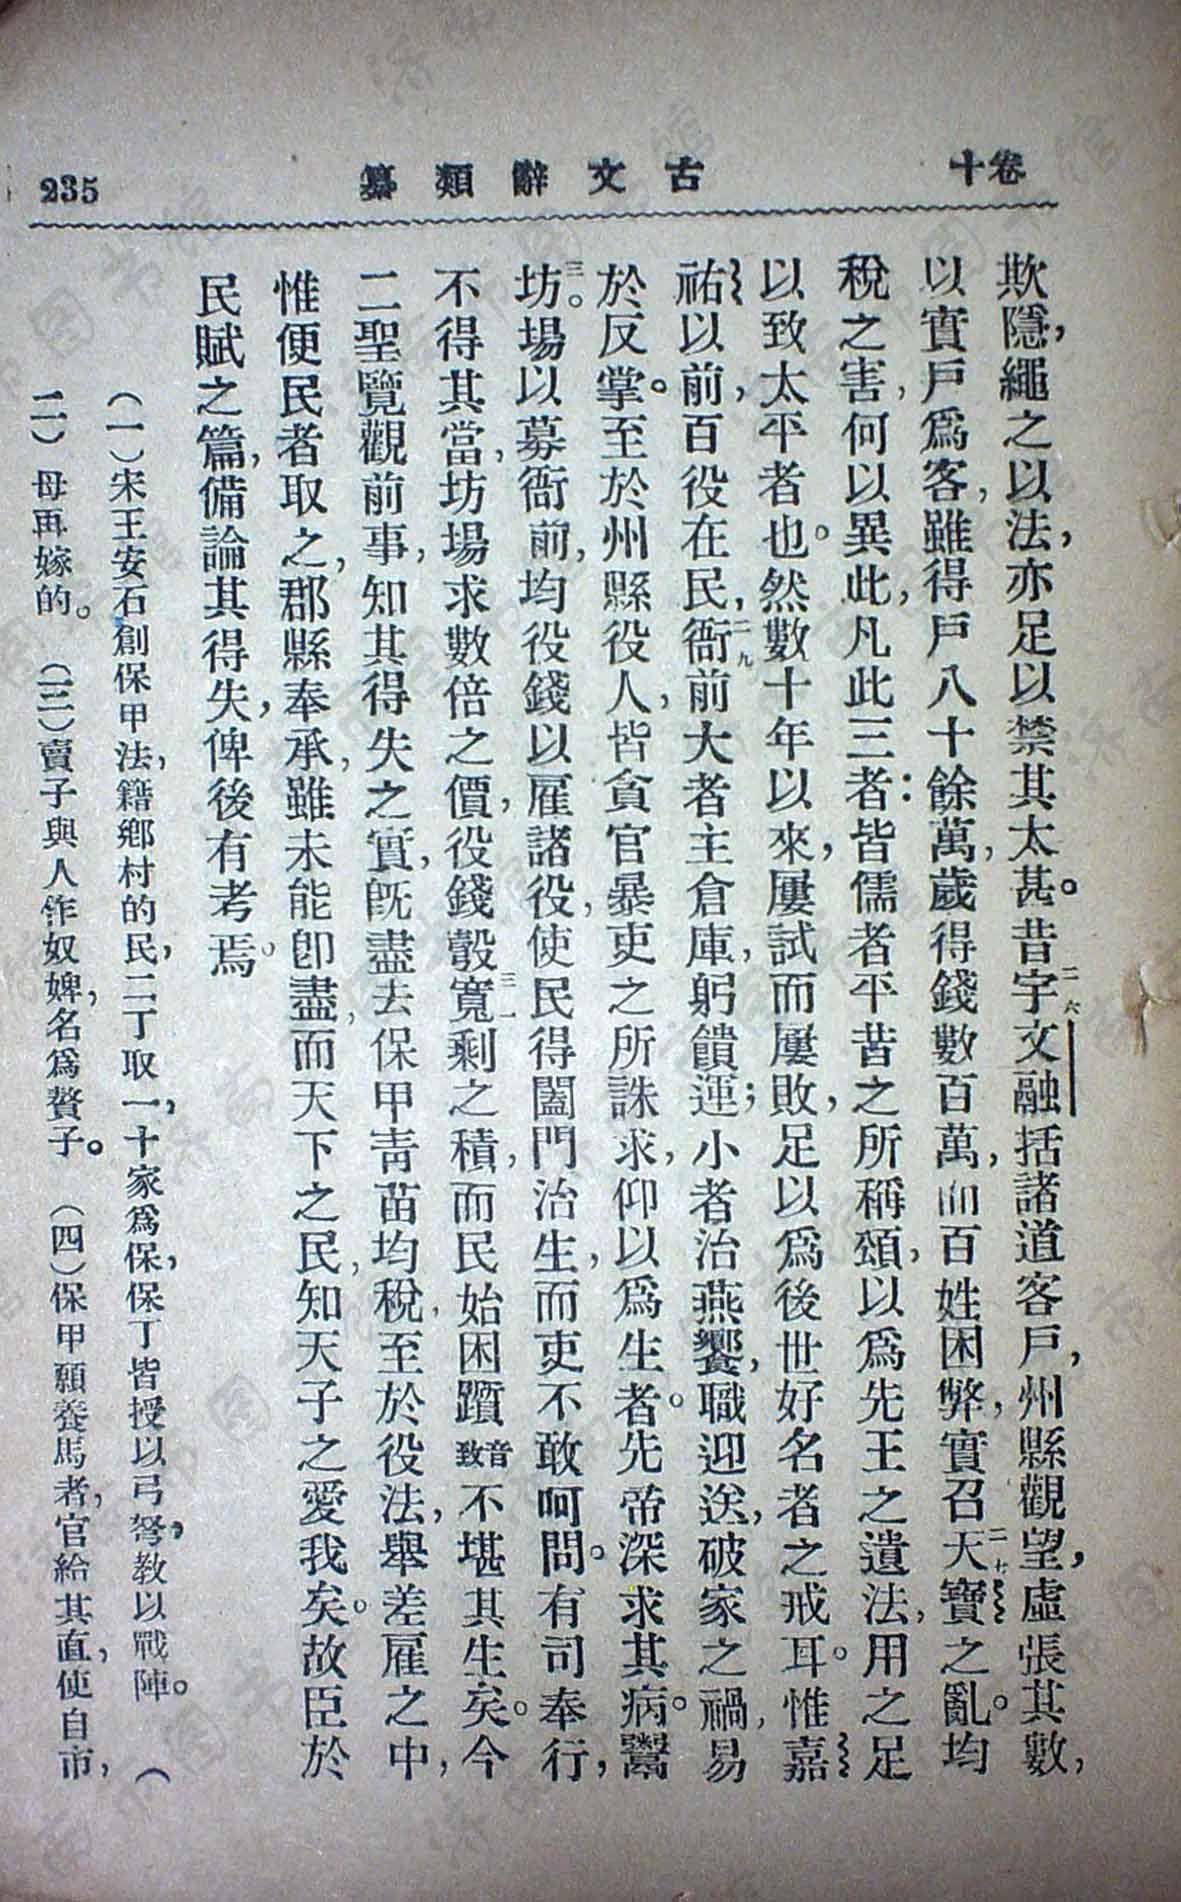 卷十
古文辭類纂
235
欺隱,繩之以法,亦足以禁其太甚。昔宇二六文融括諸道客戶,州縣觀望,虛張其數,
以實戶爲客,雖得戶八十餘萬,歲得錢數百萬,而百姓困弊,實召天二七寶之亂。均
稅之害,何以異此,凡此三者:皆儒者平昔之所稱頌,以爲先王之遺法,用之足
以致太平者也。然數十年以來,屢試而屢敗,足以爲後世好名者之戒耳。惟嘉
祐以前,百役在民,衙二九前大者主倉庫,躬饋運;小者治燕饗,職迎送,破家之禍,易
於反掌。至於州縣役人,皆貪官暴吏之所誅求,仰以爲生者。先帝深求其病。鬻
坊三〇場以募衙前,均役錢以雇諸役,使民得闔門治生,而吏不敢呵問。有司奉行,
不得其當,坊場求數倍之價,役錢彀寬三一剩之積,而民始困躓音致不堪其生矣。今
二聖覽觀前事,知其得失之實,旣盡去保甲靑苗均稅,至於役法,舉差雇之中,
惟便民者取之,郡縣奉承,雖未能卽盡,而天下之民,知天子之愛我矣。故臣於
民賦之篇,備論其得失,俾後有考焉。
(一)宋王安石創保甲法,籍鄉村的民,二丁取一,十家爲保,保丁皆授以弓弩,教以戰陣。(
二)母再嫁的。(三)賣子與人作奴婢,名爲贅子。(四)保甲願養馬者,官給其直,使自市,